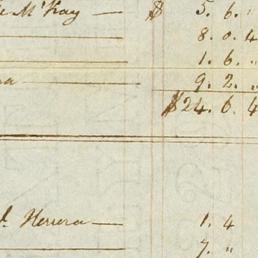 e McKay — $ 5. 6. "
— 8. 0. 4
— 1. 6. "
— 9. 2. "
$24. 6. 4
J. Herrera — 1. 4
— 7. "